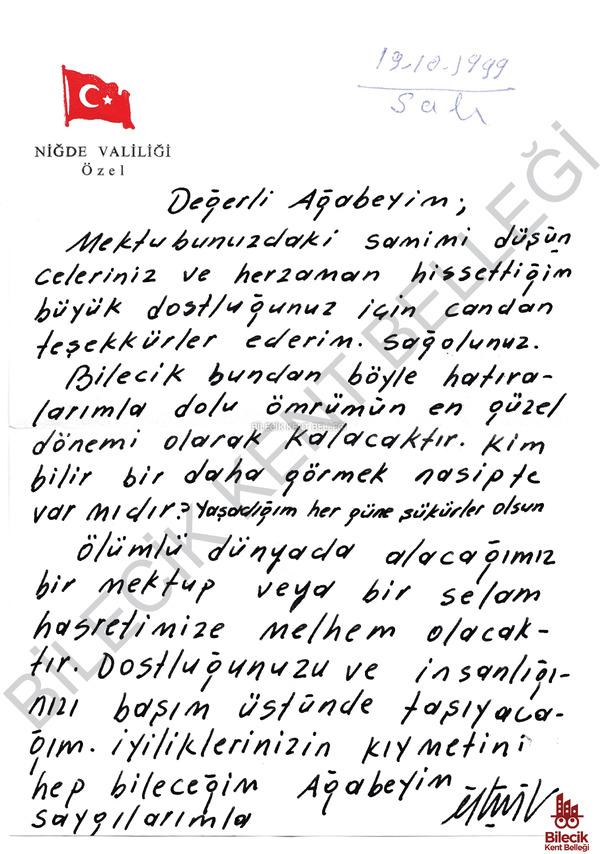 19-10-1999
Salı
NİĞDE VALİLİĞİ
Özel
Değerli Ağabeyim;
Mektubunuzdaki samimi düşün
celeriniz ve herzaman hissettiğim
büyük dostluğunuz için candan
teşekkürler ederim. Sağolunuz.
Bilecik bundan böyle hatıra-
larımla dolu ömrümün en güzel
dönemi olarak kalacaktır. Kim
bilir bir daha görmek nasipte
var mıdır? Yaşadığım her güne şükürler olsun
Ölümlü dünyada alacağımız
bir mektup veya bir selam
hasretimize melhem olacak-
tır. Dostluğunuzu ve insanlığı-
nızı başım üstünde taşıyaca-
ğım. iyiliklerinizin kıymetini
hep bileceğim Ağabeyim
saygılarımla
BİLECİK KENT BELLEĞİ
BİLECİK KENT BELLEĞİ
Bilecik
Kent Belleği